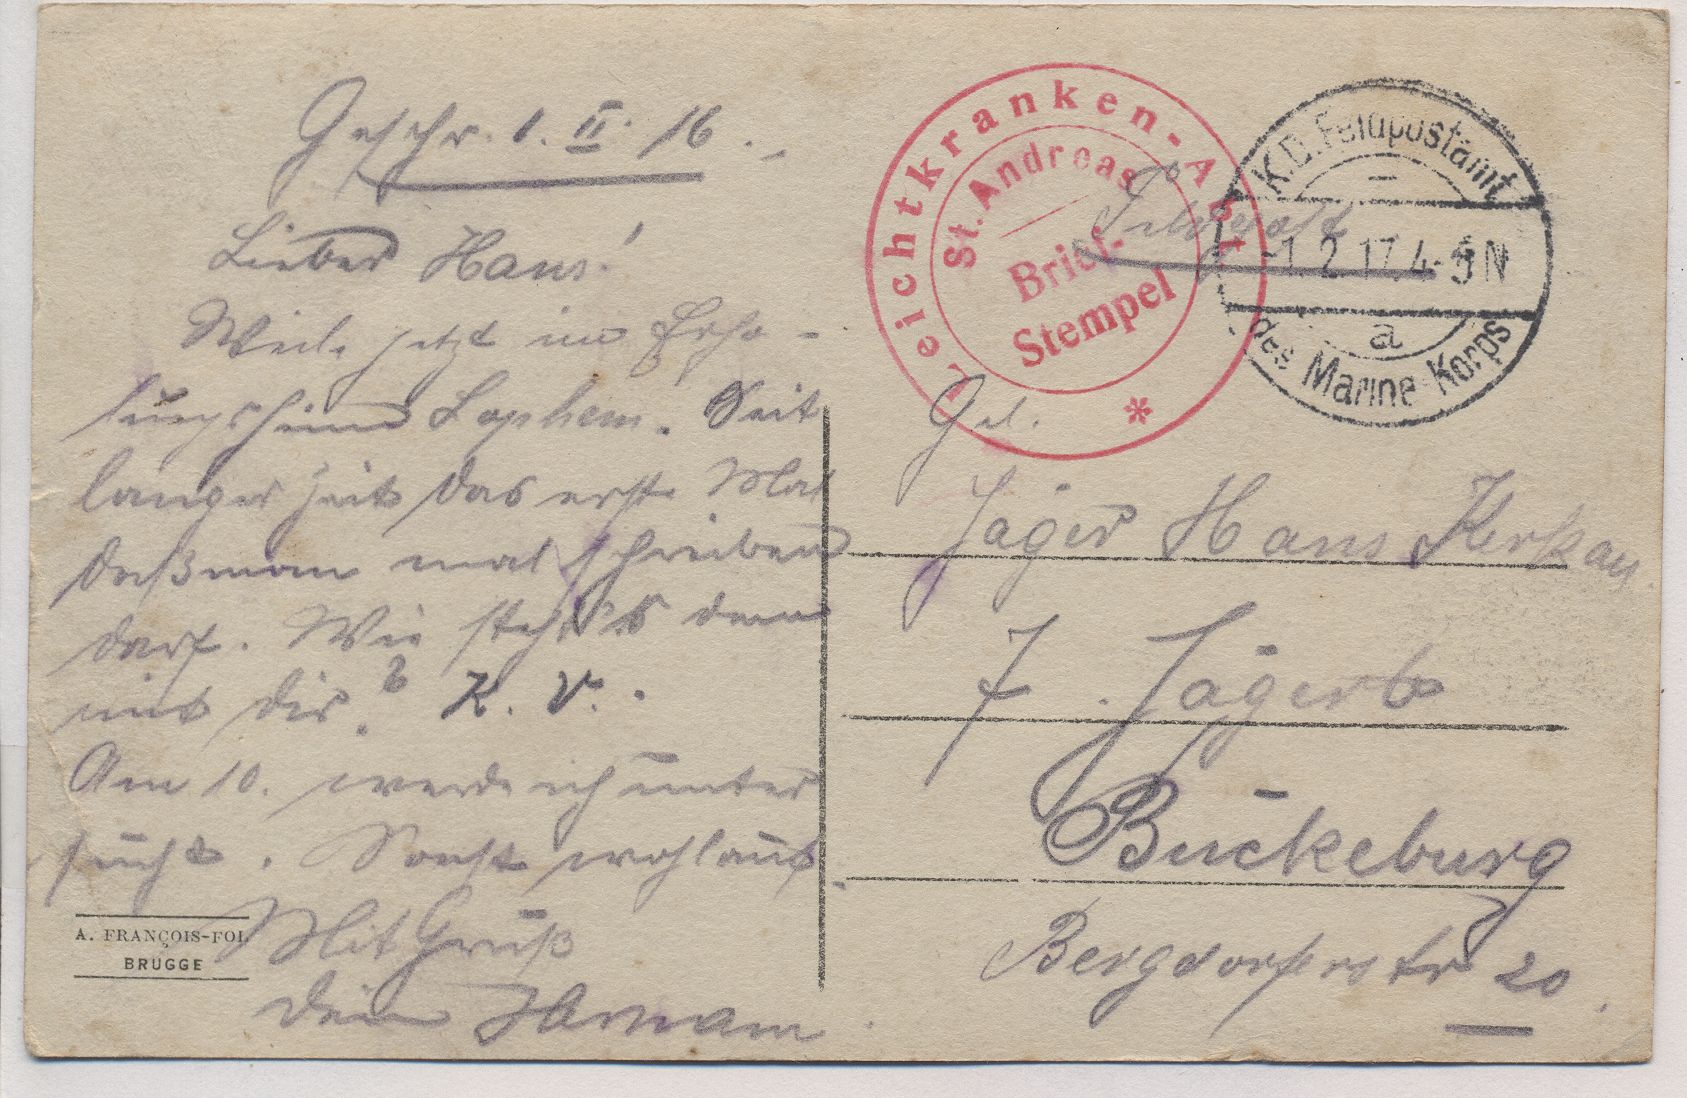 Geschr. 1. II. 16.
Lieber Hans!
Weile jetzt im Erho-
lungsheim Lophem. Seit
langer Zeit das erste Mal
daß man mal schreiben
darf. Wie steht's denn
mit Dir? K. V.
Am 10. werde ich unter
sucht. Sonst wohlauf.
Mit Gruß
Dein
A. FRANÇOIS-FOL
BRÜGGE
Leichtkranken-Abt
St. Andreas
Brief-
Stempel
*
K.D. Feldpostamt
-1.2.17.4-5N
a
des Marine-Korps
Feldpost
Jäger Hans Kerkau
7. Jägerb
Bückeburg
Bergdorferstr 20.